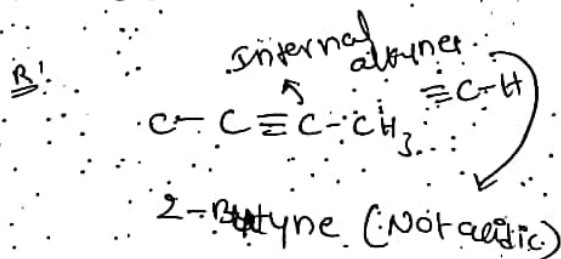 Internal
alkynes
R!
≡C-H
C-C≡C-CH₃
2-Butyne (Not acidic)